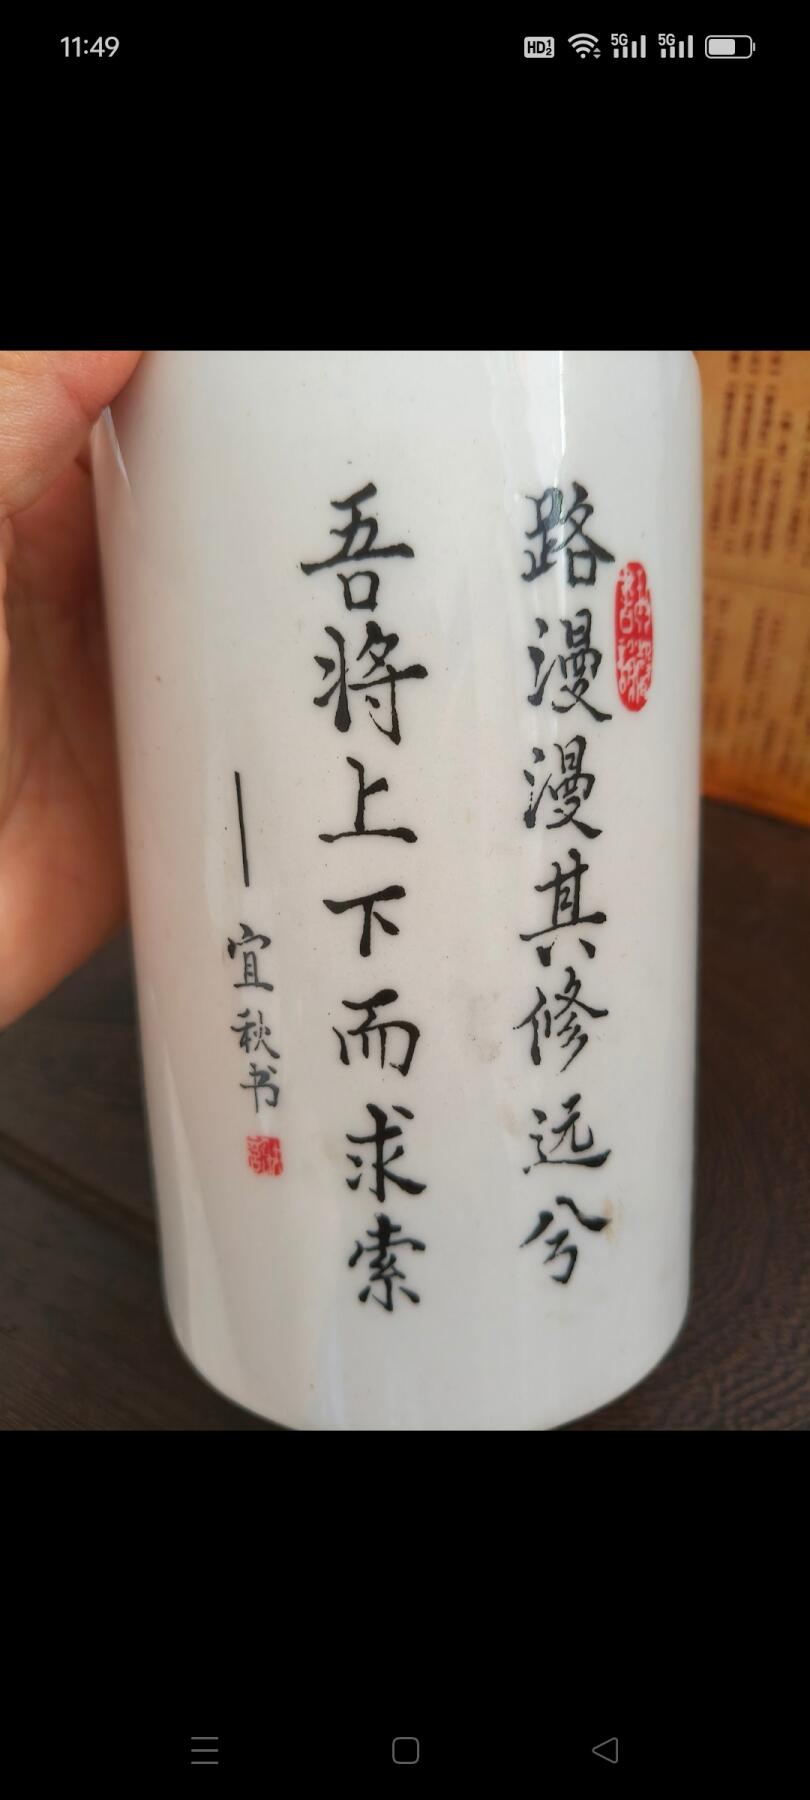 11:49
HD 1 2
5G
5G
路漫漫其修远兮
吾将上下而求索
——宜秋书